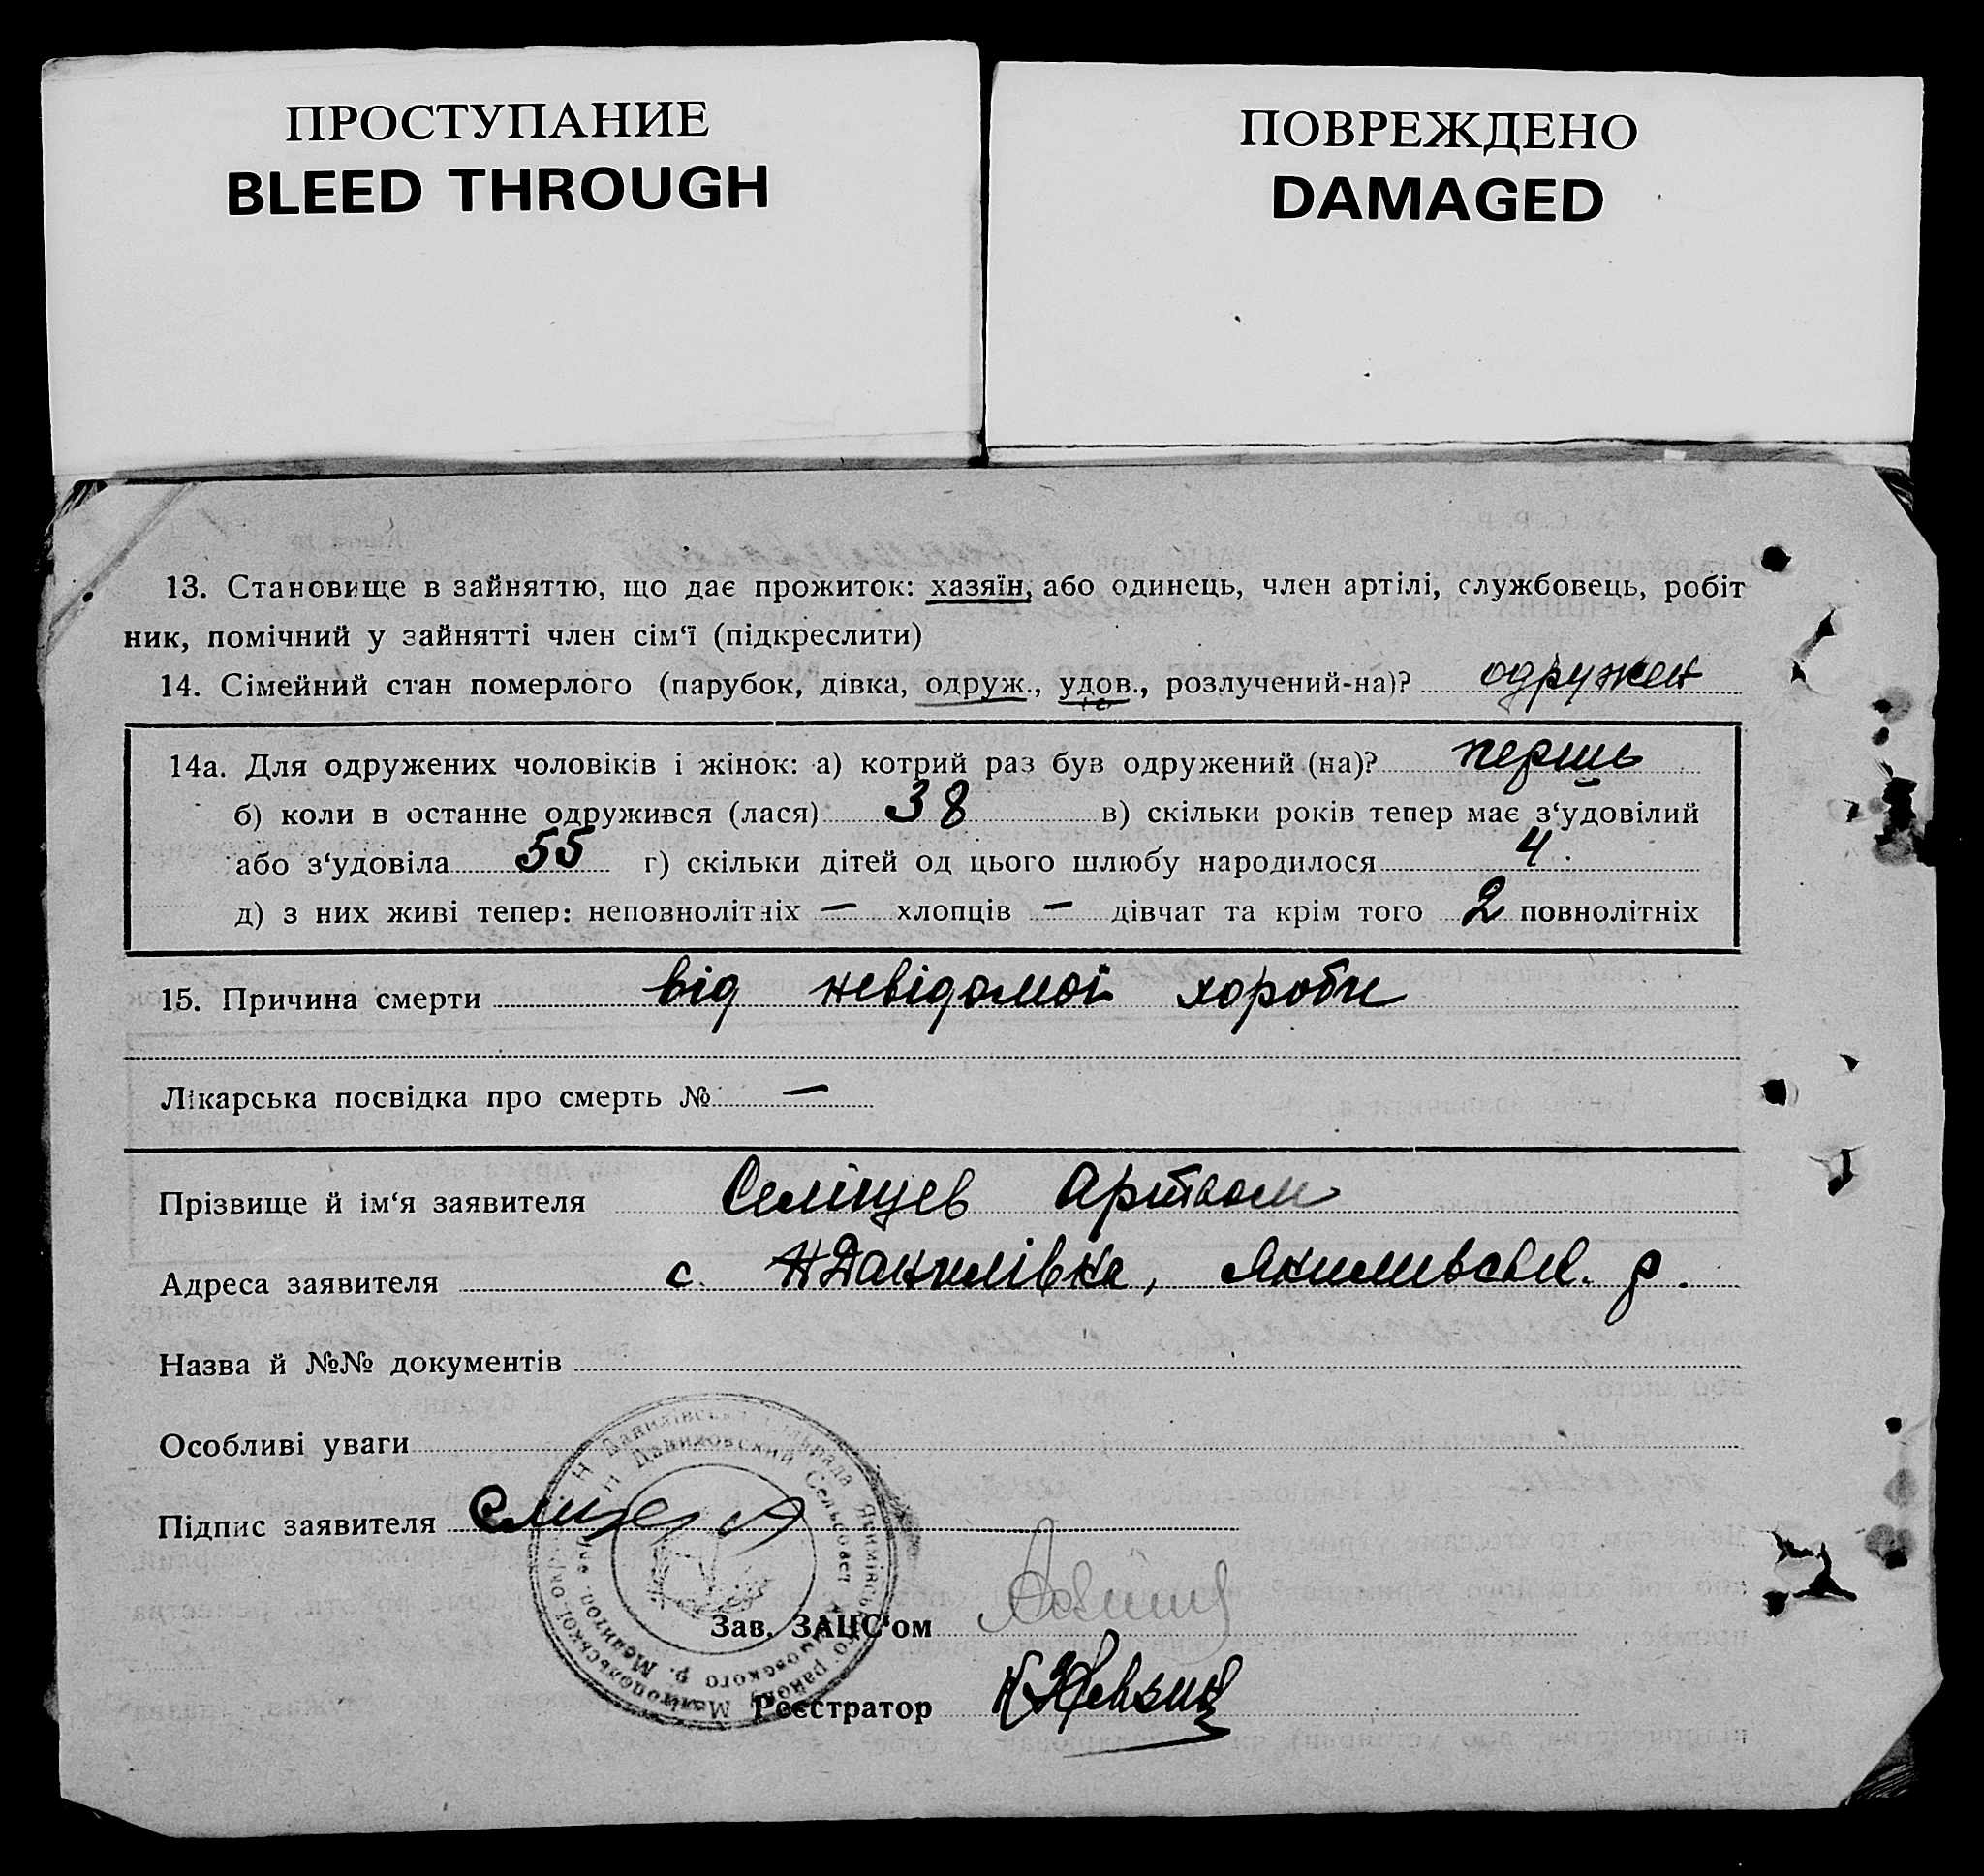 ПРОСТУПАНИЕ
BLEED THROUGH
ПОВРЕЖДЕНО
DAMAGED
13. Становище в зайняттю, що дає прожиток: хазяїн, або одинець, член артілі, службовець, робіт
ник, помічний у зайнятті член сім‘ї (підкреслити)
14. Сімейний стан померлого (парубок, дівка, одруж., удов., розлучений-на)? одружен
14а. Для одружених чоловіків і жінок: а) котрий раз був одружений (на)? перш
б) коли в останне одружився (лася) 38 в) скільки років тепер має з‘удовілий
або з‘удовіла 55 г) скільки дітей од цього шлюбу народилося 4
д) з них живі тепер: неповнолітніх — хлопців — дівчат та крім того 2 повнолітніх
15. Причина смерти від невідомої хороби
Лікарська посвідка про смерть № —
Прізвище й ім‘я заявителя Селінцев Артьом
Адреса заявителя с. Н Данилівка, Якимивськ. р.
Назва й №№ документів
Особливі уваги
Підпис заявителя
Зав. ЗАЦС‘ом
Реєстратор